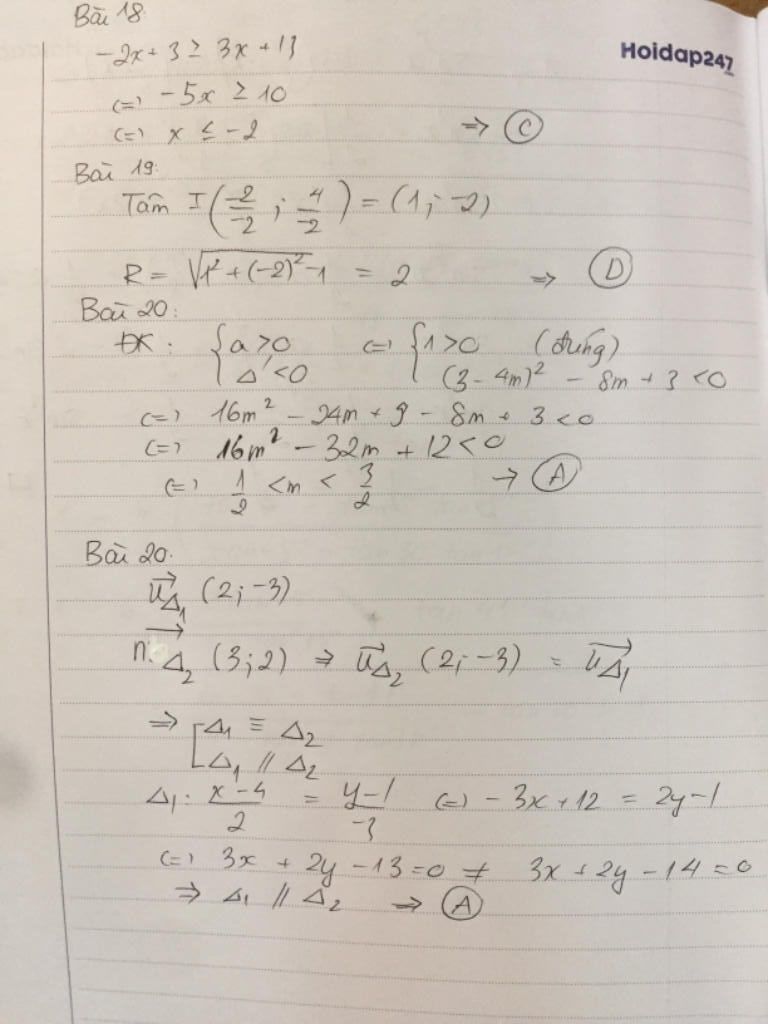 Bài 18.
Hoidap247
-2x + 3 ≥ 3x + 13
(=) -5x ≥ 10
(=) x ≤ -2 => C
Bài 19:
Tâm I(-2/-2 ; 4/-2) = (1; -2)
R = √(1² + (-2)² - 1) = 2 => D
Bài 20:
ĐK: { a > 0 (=) { 1 > 0 (đúng)
Δ' < 0 (3 - 4m)² - 8m + 3 < 0
(=) 16m² - 24m + 9 - 8m + 3 < 0
(=) 16m² - 32m + 12 < 0
(=) 1/2 < m < 3/2 → A
Bài 20.
u⃗Δ₁ (2; -3)
n⃗Δ₂ (3; 2) => u⃗Δ₂ (2; -3) = u⃗Δ₁
=> [ Δ₁ ≡ Δ₂
Δ₁ // Δ₂
Δ₁: (x-4)/2 = (y-1)/-3 (=) -3x + 12 = 2y - 1
(=) 3x + 2y - 13 = 0 ≠ 3x + 2y - 14 = 0
=> Δ₁ // Δ₂ => A